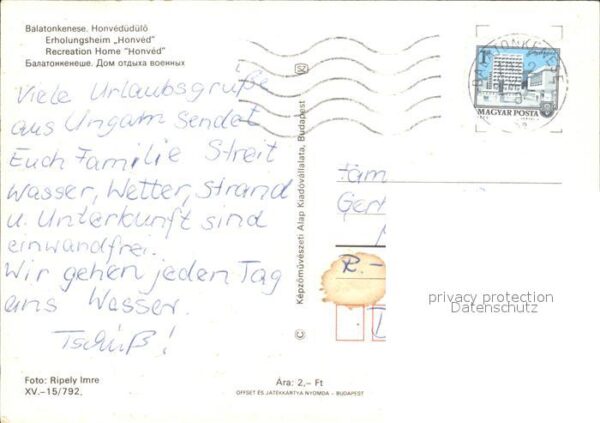 Balatonkenese. Honvédüdülő
Erholungsheim „Honvéd”
Recreation Home "Honvéd"
Балатонкенеше. Дом отдыха военных
Viele Urlaubsgrüße
aus Ungarn sendet
Euch Familie Streit
Wasser, Wetter, Strand
u. Unterkunft sind
einwandfrei.
Wir gehen jeden Tag
ans Wasser.
Tschüß!
Foto: Ripely Imre
XV.–15/792.
© Képzőművészeti Alap Kiadóvállalata, Budapest
Ára: 2,– Ft
OFFSET ÉS JÁTÉKKÁRTYA NYOMDA – BUDAPEST
BALATONKENESE
1Ft
MAGYAR POSTA
Fam
Ger
R.–
privacy protection
Datenschutz